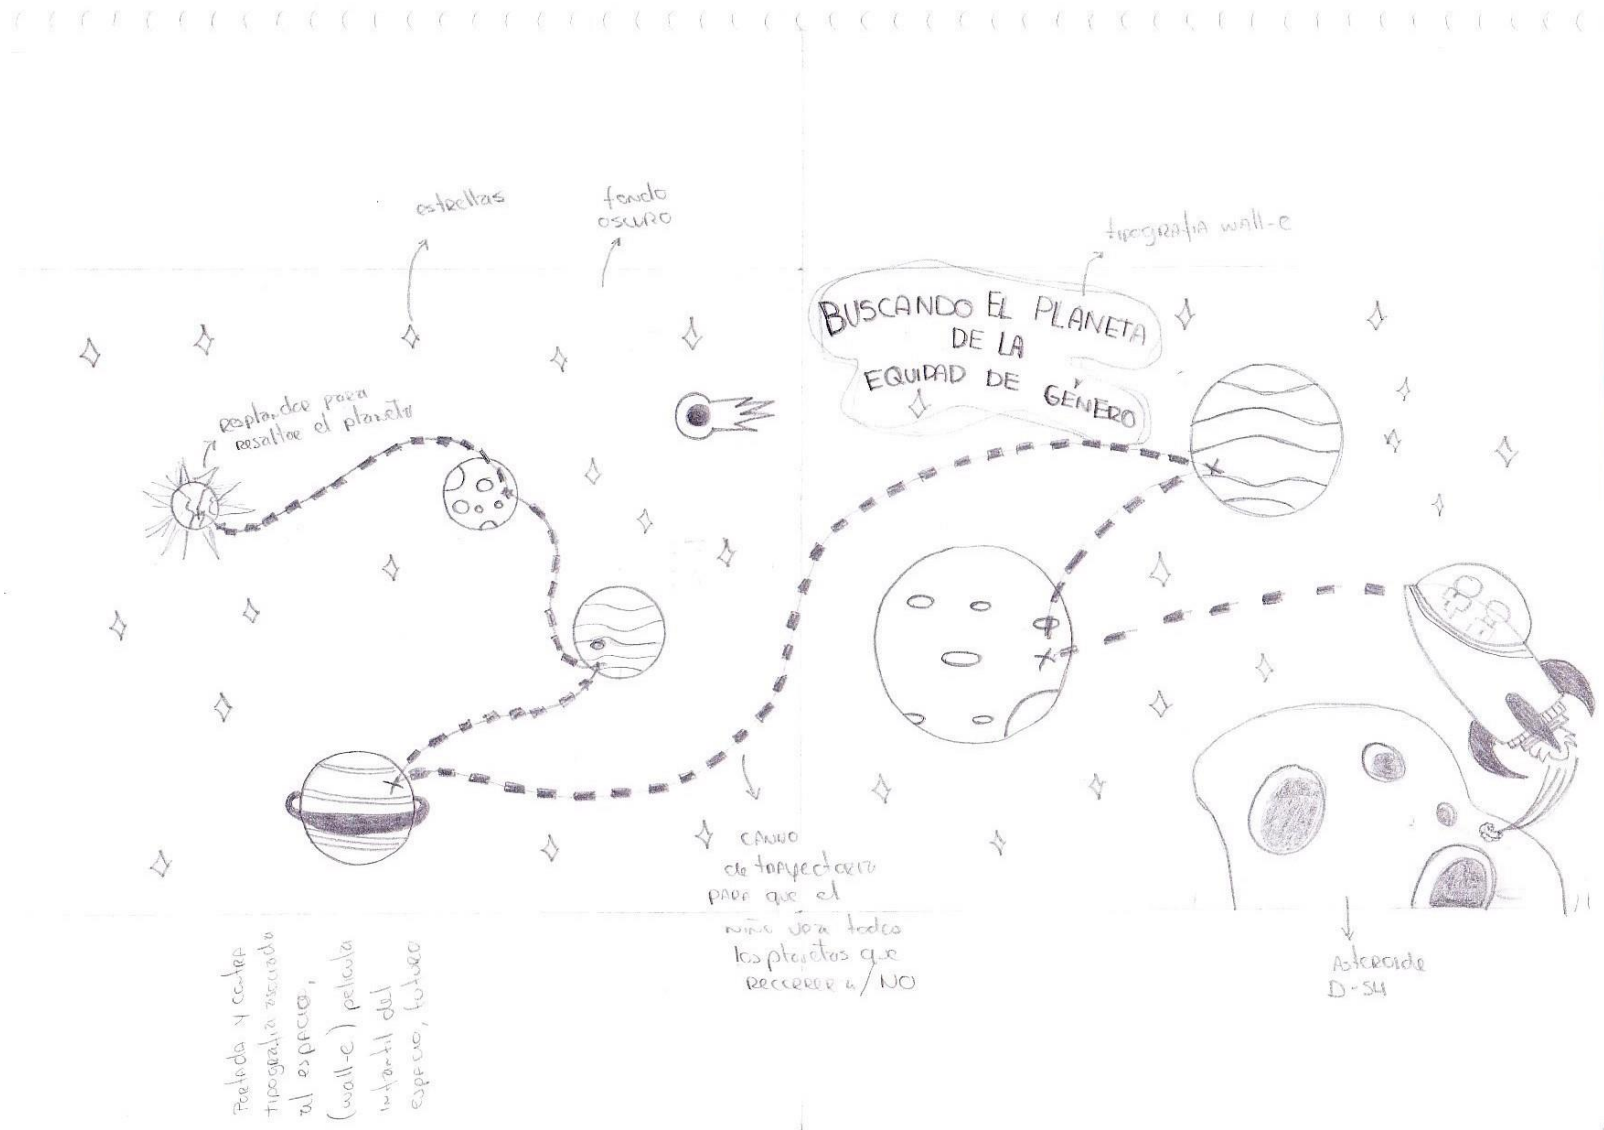 estrellas
fondo
OSCURO
tipografia wall-e
BUSCANDO EL PLANETA
DE LA
EQUIDAD DE GÉNERO
resplandor para
resaltar el planeta
camino
de trayectoria
para que el
niño vea todos
los planetas que
recorrera/NO
Asteroide
D-54
Portada y contra
tipografia asociada
al espacio,
(wall-e) pelicula
infantil del
espacio, futuro